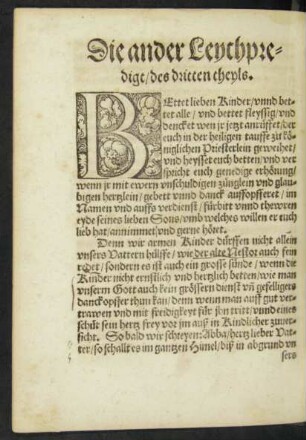 Die ander Leychpre-
digt/des dritten theyls.
BEttet lieben Kinder/vnnd bet-
tet alle/vnd bettet fleyssig/vnd
dencket wen jr jetzt anrüffet/der
euch in der heiligen tauffe zu kö-
niglichen Priesterlein geweihet/
vnd heysset euch betten/vnd ver
spricht euch genedige erhörung/
wenn jr mit ewern vnschuldigen zünglein vnd glau-
bigen hertzlein/gebett vnnd danck auffopfferet/im
Namen vnd auffs verdienst/fürbitt vnnd thewren
eyde seines lieben Sons/vmb welches willen er euch
lieb hat/annimmet/vnd gerne höret.
Denn wir armen Kinder dürffen nicht allein
vnsers Vattern hülffe/wie der alte Nestor auch sein
redet/sondern es ist auch ein grosse sünde/wenn die
Kinder nicht ernstlich vnd hertzlich betten/wie man
vnserm Gott auch kein grössern dienst vñ gefelligers
danckopffer thun kan/denn wenn man auff gut ver-
trawen vnd mit freidigkeyt für jhn tritt/vnnd eines
schüt sein hertz frey vor jm auß in Kindlicher zuuer-
sicht. So bald wir schreyen: Abba/hertz lieber Vat-
ter/so schallt es im gantzen Himel/diß in abgrund vn
sers